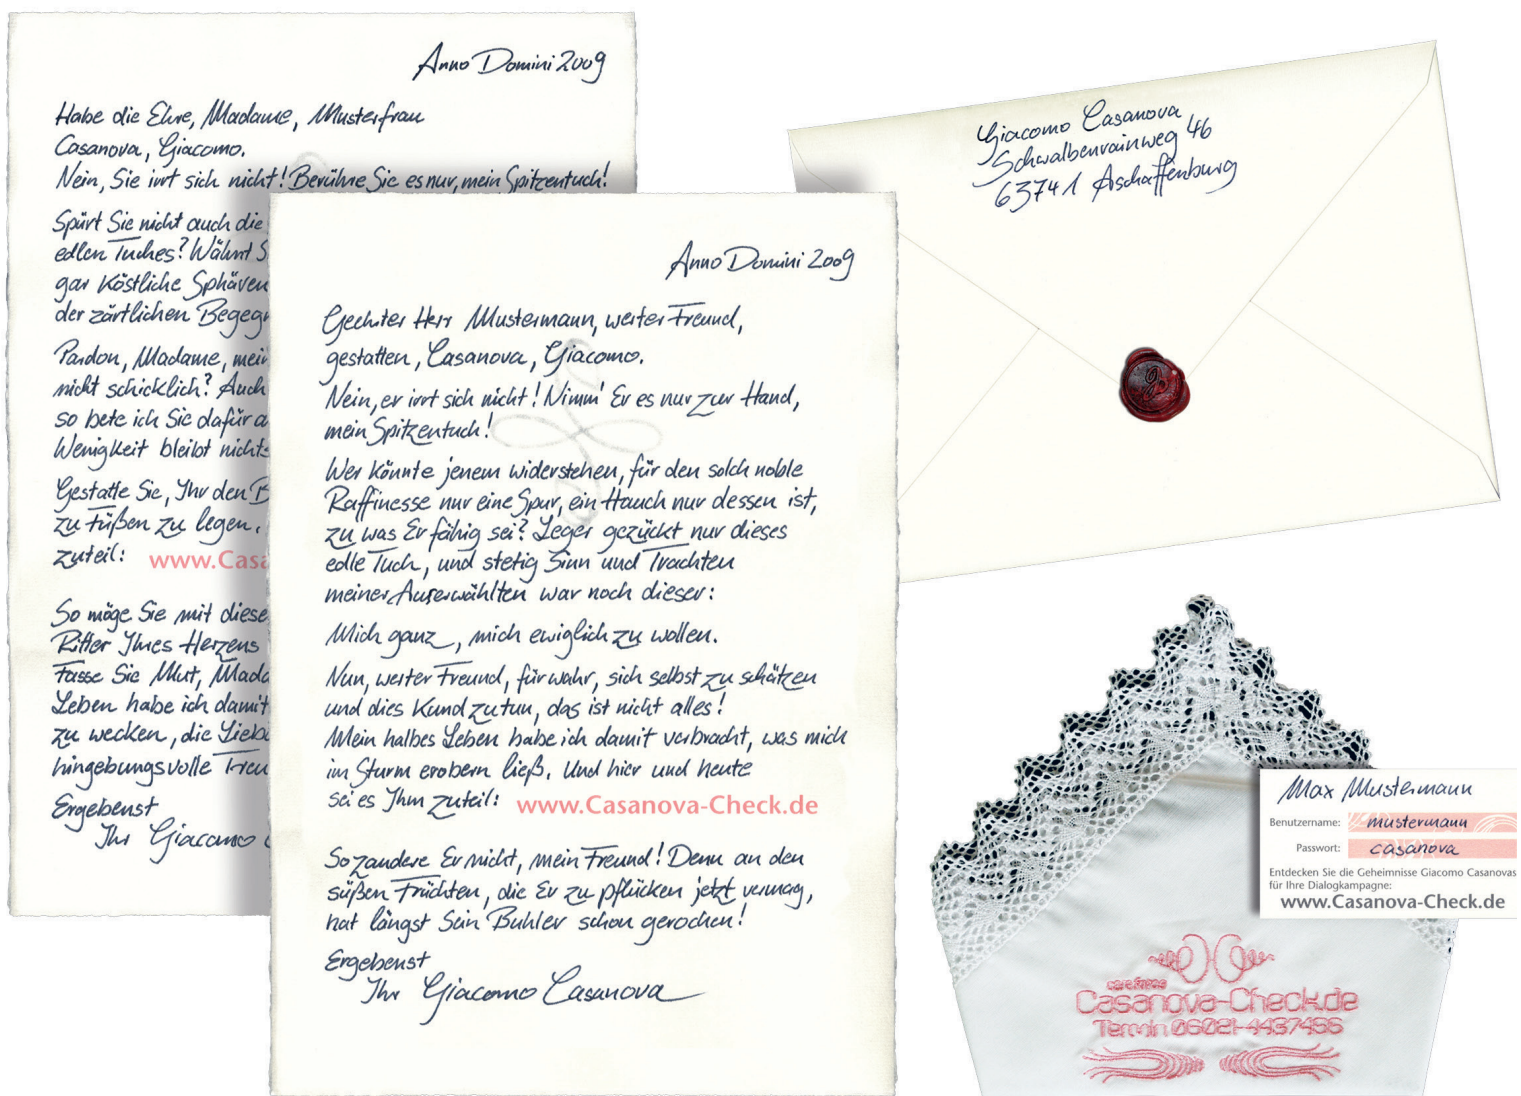 Anno Domini 2009
Habe die Ehre, Madame, Musterfrau
Casanova, Giacomo.
Nein, Sie irrt sich nicht! Berühre Sie es nur, mein Spitzentuch!
Spürt Sie nicht auch die
edlen Tuches? Wähnt S
gar köstliche Sphären
der zärtlichen Begegn
Pardon, Madame, mein
nicht schicklich? Auch
so bete ich Sie dafür a
Wenigkeit bleibt nichts
Gestatte Sie, Ihr den B
zu Füßen zu legen.
zuteil: www.Casa
So möge Sie mit diese
Ritter Ihres Herzens
Fasse Sie Mut, Mada
Leben habe ich damit
zu wecken, die Liebe
hingebungsvolle Treu
Ergebenst
Ihr Giacomo C
Anno Domini 2009
Geehrter Herr Mustermann, werter Freund,
gestatten, Casanova, Giacomo.
Nein, er irrt sich nicht! Nimm' Er es nur zur Hand,
mein Spitzentuch!
Wer könnte jenem widerstehen, für den solch noble
Raffinesse nur eine Spur, ein Hauch nur dessen ist,
zu was Er fähig sei? Leger gezückt nur dieses
edle Tuch, und stetig Sinn und Trachten
meiner Auserwählten war noch dieser:
Mich ganz, mich ewiglich zu wollen.
Nun, werter Freund, fürwahr, sich selbst zu schätzen
und dies kund zu tun, das ist nicht alles!
Mein halbes Leben habe ich damit verbracht, was mich
im Sturm erobern ließ. Und hier und heute
sei es Ihm zuteil: www.Casanova-Check.de
So zaudere Er nicht, mein Freund! Denn an den
süßen Früchten, die Er zu pflücken jetzt vermag,
hat längst Sein Buhler schon gerochen!
Ergebenst
Ihr Giacomo Casanova
Giacomo Casanova
Schwalbenrainweg 46
63741 Aschaffenburg
Max Mustermann
Benutzername: mustermann
Passwort: casanova
Entdecken Sie die Geheimnisse Giacomo Casanovas
für Ihre Dialogkampagne:
www.Casanova-Check.de
Casanova-Check.de
Termin 06021-4437456